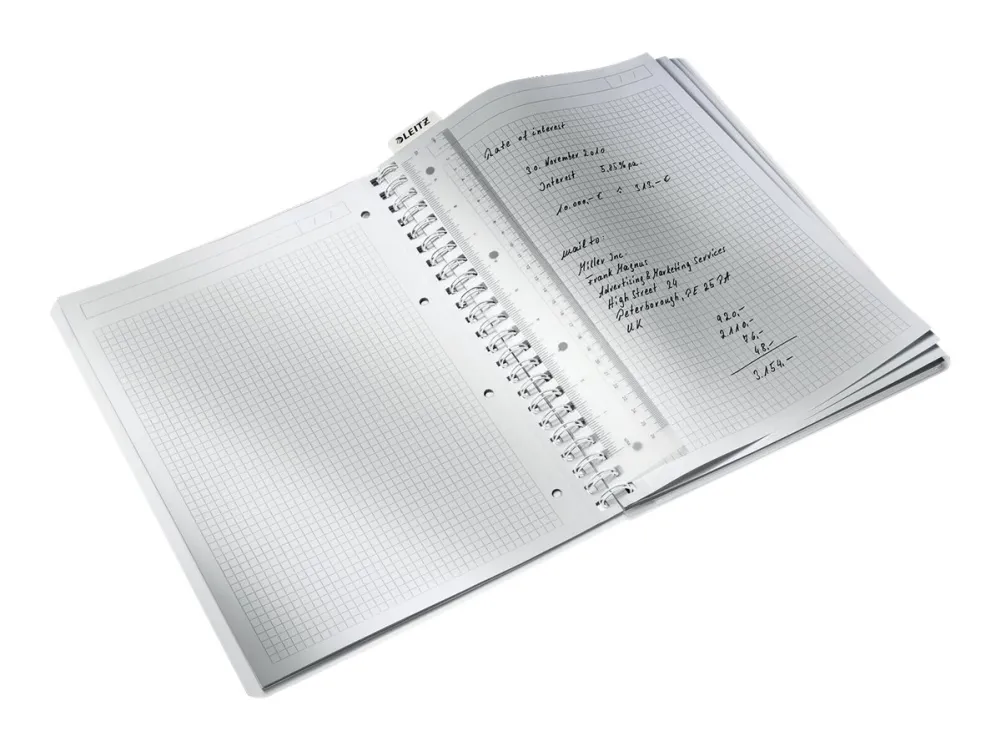 LEITZ
Rate of interest
30. November 2010
Interest 5.15% pa.
10.000,- € < 313,- €
mail to:
Miller Inc.
Frank Magnus
Advertising & Marketing Services
High Street 24
Peterborough, PE 25 PA
UK
920,-
2110,-
76,-
48,-
3.154,-